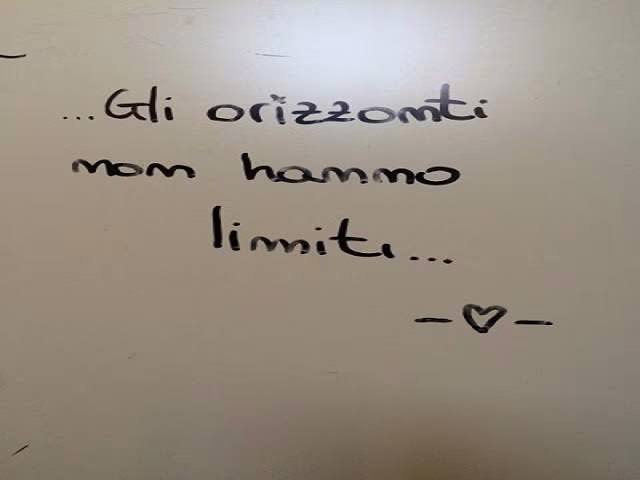 ...Gli orizzonti
non hanno
limiti...
-♡-